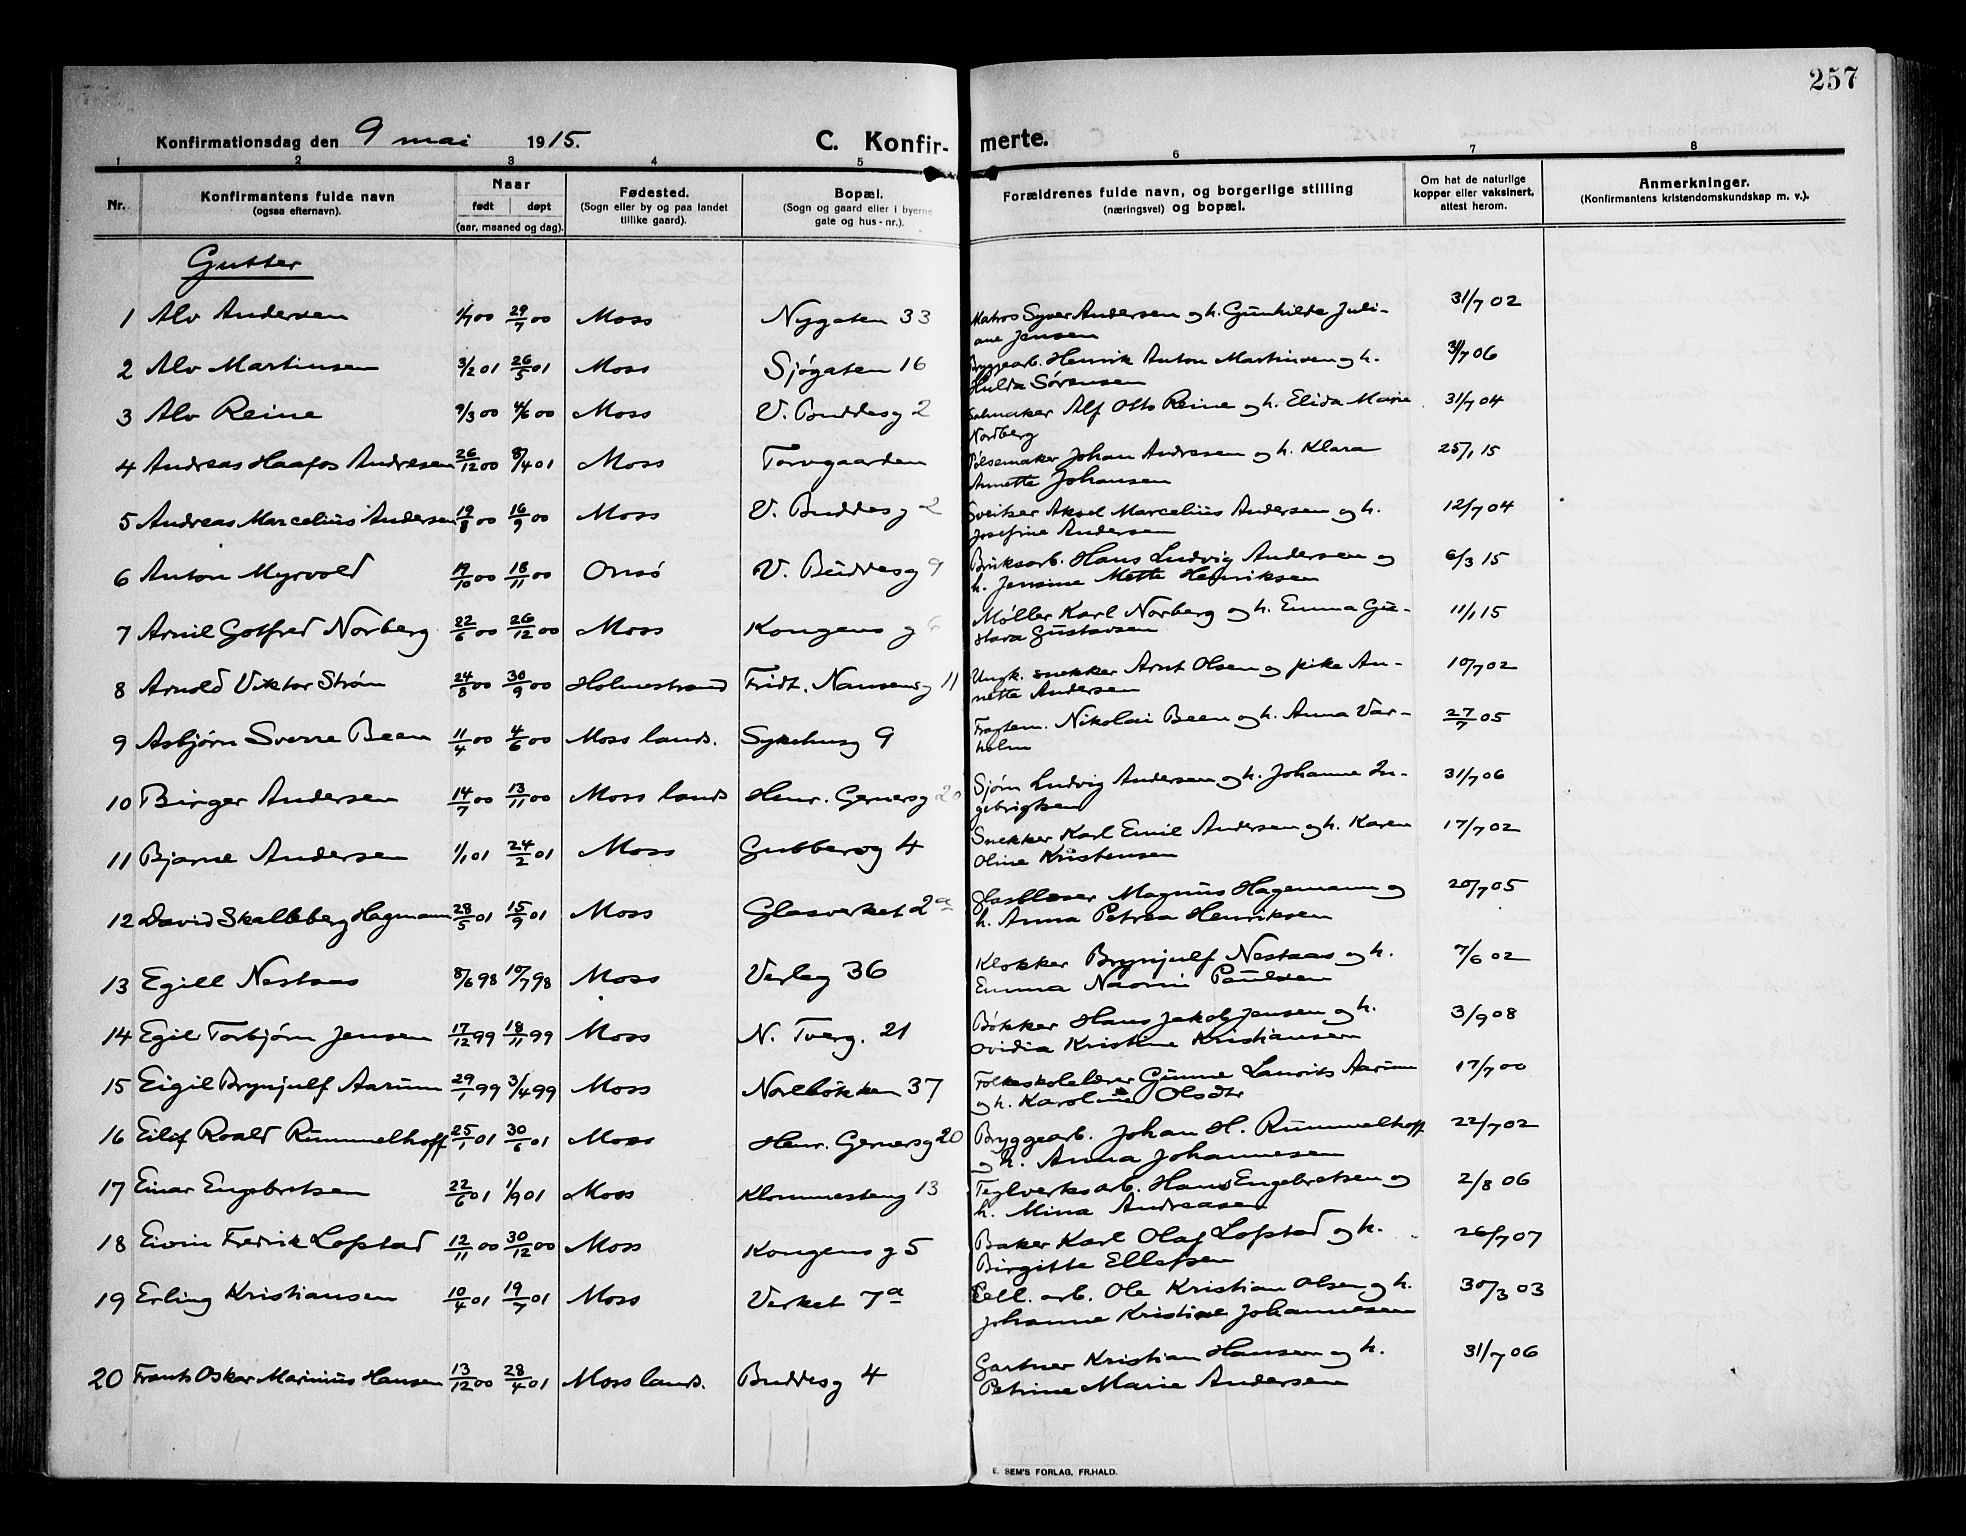 257
Konfirmationsdag den 9 mai 1915. C. Konfir- merte.
1 2 3 4 5 6 7 8
Nr. Konfirmantens fulde navn (ogsaa efternavn). Naar født døpt (aar, maaned og dag). Fødested. (Sogn eller by og paa landet tillike gaard). Bopæl. (Sogn og gaard eller i byerne gate og hus-nr.). Forældrenes fulde navn, og borgerlige stilling (næringsvei) og bopæl. Om hat de naturlige kopper eller vaksinert, attest herom. Anmerkninger. (Konfirmantens kristendomskundskap m. v.).
Gutter
1 Alv Andersen 1/7 00 29/7 00 Moss Nygaten 33 Matros Syver Andersen og h. Gunhilde Juli- 31/7 02
ane Jensen
2 Alv Martinsen 3/2 01 26/5 01 Moss Sjøgaten 16 Bryggearb. Henrik Anton Martinsen og h. 31/7 06
Hulda Sørensen
3 Alv Reine 9/3 00 4/6 00 Moss V. Buddesg 2 Salmaker Alf Otto Reine og h. Elida Marie 31/7 04
Nordberg
4 Andreas Haafos Andresen 26/12 00 8/4 01 Moss Torvgaarden Pølsemaker Johan Andresen og h. Klara 25/1 15
Annette Johansen
5 Andreas Marcelius Andersen 19/8 00 16/9 00 Moss V. Buddesg 2 Sveitser Aksel Marcelius Andersen og h. 12/7 04
Josefine Andersen
6 Anton Myrvold 19/10 00 18/11 00 Onsø V. Buddesg 9 Bruksarb. Hans Ludvig Andersen og 6/3 15
h. Jensine Mette Henriksen
7 Arnil Gotfred Norberg 22/6 00 26/12 00 Moss Kongens g 6 Møller Karl Norberg og h. Emma Gu- 11/1 15
stava Gustavsen
8 Arnold Viktor Strøm 24/8 00 30/9 00 Holmestrand Fridt. Nansensg 11 Ungk. snekker Arnt Olsen og pike An- 10/7 02
nette Andersen
9 Asbjørn Sverre Been 11/4 00 4/6 00 Moss lands. Sykehusg 9 Fragtem. Nikolai Been og h. Anna Var- 27/7 05
holm
10 Birger Andersen 14/7 00 13/11 00 Moss lands Henr. Gernersg 20 Sjøm Ludvig Andersen og h. Johanne In- 31/7 06
gebrigtsen
11 Bjarne Andersen 1/1 01 24/2 01 Moss Gubberog 4 Snekker Karl Emil Andersen og h. Karen 17/7 02
Oline Kristensen
12 David Skalleberg Hagmann 28/5 01 15/9 01 Moss Glasverket 2a Glasblæser Magnus Hagemann og 20/7 05
h. Anna Petrea Henriksen
13 Egill Nestaas 8/6 98 10/7 98 Moss Verleg 36 Klokker Brynjulf Nestaas og h. 7/6 02
Emma Naomi Paulsen
14 Egil Torbjørn Jensen 17/12 99 18/11 99 Moss N. Tverg. 21 Bøkker Hans Jakob Jensen og h. 3/9 08
Ovidia Kristine Kristiansen
15 Eigil Brynjulf Aarum 29/1 99 3/4 99 Moss Norebøkken 37 Folkeskolelærer Gunne Laurits Aarum 17/7 00
og h. Karoline Olsdtr
16 Eilif Roald Rummelhoff 25/1 01 30/6 01 Moss Henr. Gernersg 20 Bryggearb. Johan H. Rummelhoff 22/7 02
og h. Anna Johannesen
17 Einar Engebretsen 22/6 01 1/9 01 Moss Klommesteng 13 Teglverksarb. Hans Engebretsen og 2/8 06
h. Mina Andreasen
18 Eivin Fredrik Lofstad 12/11 00 30/12 00 Moss Kongens g 5 Baker Karl Olaf Lofstad og h. 26/7 07
Birgitte Ellefsen
19 Erling Kristiansen 10/4 01 19/7 01 Moss Verket 7a Cell. arb. Ole Kristian Olsen og h. 30/3 03
Johanne Kristine Johannesen
20 Frants Oskar Marinius Hansen 13/12 00 28/4 01 Moss lands. Buddesg 4 Gartner Kristian Hansen og h. 31/7 06
Petrine Marie Andersen
E. SEM'S FORLAG, FR.HALD.